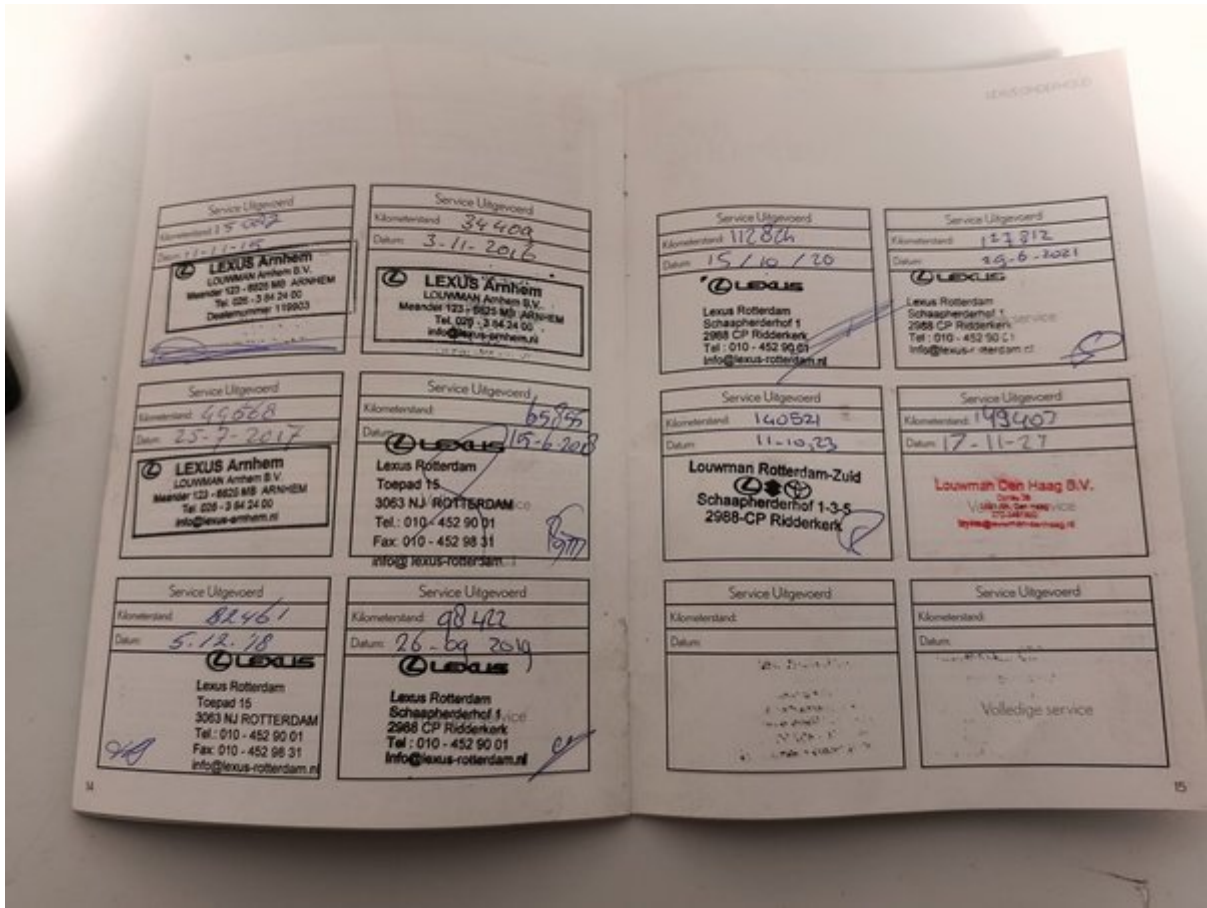 LEXUS ONDERHOUD
Service Uitgevoerd
Kilometerstand:
Datum: 11-11-15
LEXUS Arnhem
LOUWMAN Arnhem B.V.
Meander 123 - 6825 MB ARNHEM
Tel. 026 - 3 84 24 00
Dealernummer 119903
Service Uitgevoerd
Kilometerstand: 34409
Datum: 3-11-2016
LEXUS Arnhem
LOUWMAN Arnhem B.V.
Meander 123 - 6825 MB ARNHEM
Tel. 026 - 3 84 24 00
info@lexus-arnhem.nl
Service Uitgevoerd
Kilometerstand: 49668
Datum: 25-7-2017
LEXUS Arnhem
LOUWMAN Arnhem B.V.
Meander 123 - 6825 MB ARNHEM
Tel. 026 - 3 84 24 00
info@lexus-arnhem.nl
Service Uitgevoerd
Kilometerstand: 65855
Datum: 15-6-2018
LEXUS
Lexus Rotterdam
Toepad 15
3063 NJ ROTTERDAM
Tel.: 010 - 452 90 01
Fax: 010 - 452 98 31
info@lexus-rotterdam.
Service Uitgevoerd
Kilometerstand: 82461
Datum: 5.12.'18
LEXUS
Lexus Rotterdam
Toepad 15
3063 NJ ROTTERDAM
Tel.: 010 - 452 90 01
Fax: 010 - 452 98 31
info@lexus-rotterdam.nl
Service Uitgevoerd
Kilometerstand: 98422
Datum: 26-09 2019
LEXUS
Lexus Rotterdam
Schaapherderhof 1
2988 CP Ridderkerk
Tel : 010 - 452 90 01
Info@lexus-rotterdam.nl
14
Service Uitgevoerd
Kilometerstand: 112824
Datum: 15/10/20
LEXUS
Lexus Rotterdam
Schaapherderhof 1
2988 CP Ridderkerk
Tel : 010 - 452 90 01
Info@lexus-rotterdam.nl
Service Uitgevoerd
Kilometerstand: 127812
Datum: 29-6-2021
LEXUS
Lexus Rotterdam
Schaapherderhof 1
2988 CP Ridderkerk
Tel : 010 - 452 90 01
Info@lexus-rotterdam.nl
Service Uitgevoerd
Kilometerstand: 140521
Datum: 11-10,23
Louwman Rotterdam-Zuid
Schaapherderhof 1-3-5
2988-CP Ridderkerk
Service Uitgevoerd
Kilometerstand: 149407
Datum: 17-11-27
Louwman Den Haag B.V.
Service Uitgevoerd
Kilometerstand:
Datum:
Service Uitgevoerd
Kilometerstand:
Datum:
Volledige service
15